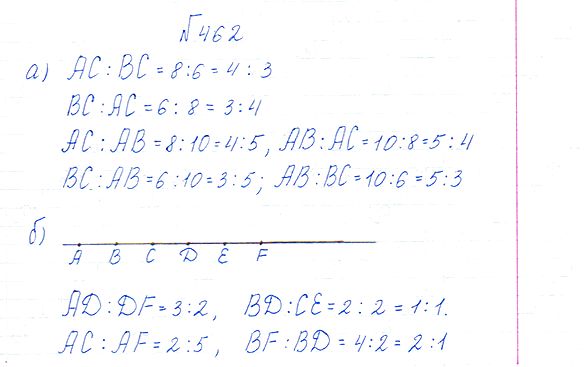 №462
а) AC : BC = 8 : 6 = 4 : 3
BC : AC = 6 : 8 = 3 : 4
AC : AB = 8 : 10 = 4 : 5, AB : AC = 10 : 8 = 5 : 4
BC : AB = 6 : 10 = 3 : 5; AB : BC = 10 : 6 = 5 : 3
б)
A B C D E F
AD : DF = 3 : 2, BD : CE = 2 : 2 = 1 : 1.
AC : AF = 2 : 5, BF : BD = 4 : 2 = 2 : 1